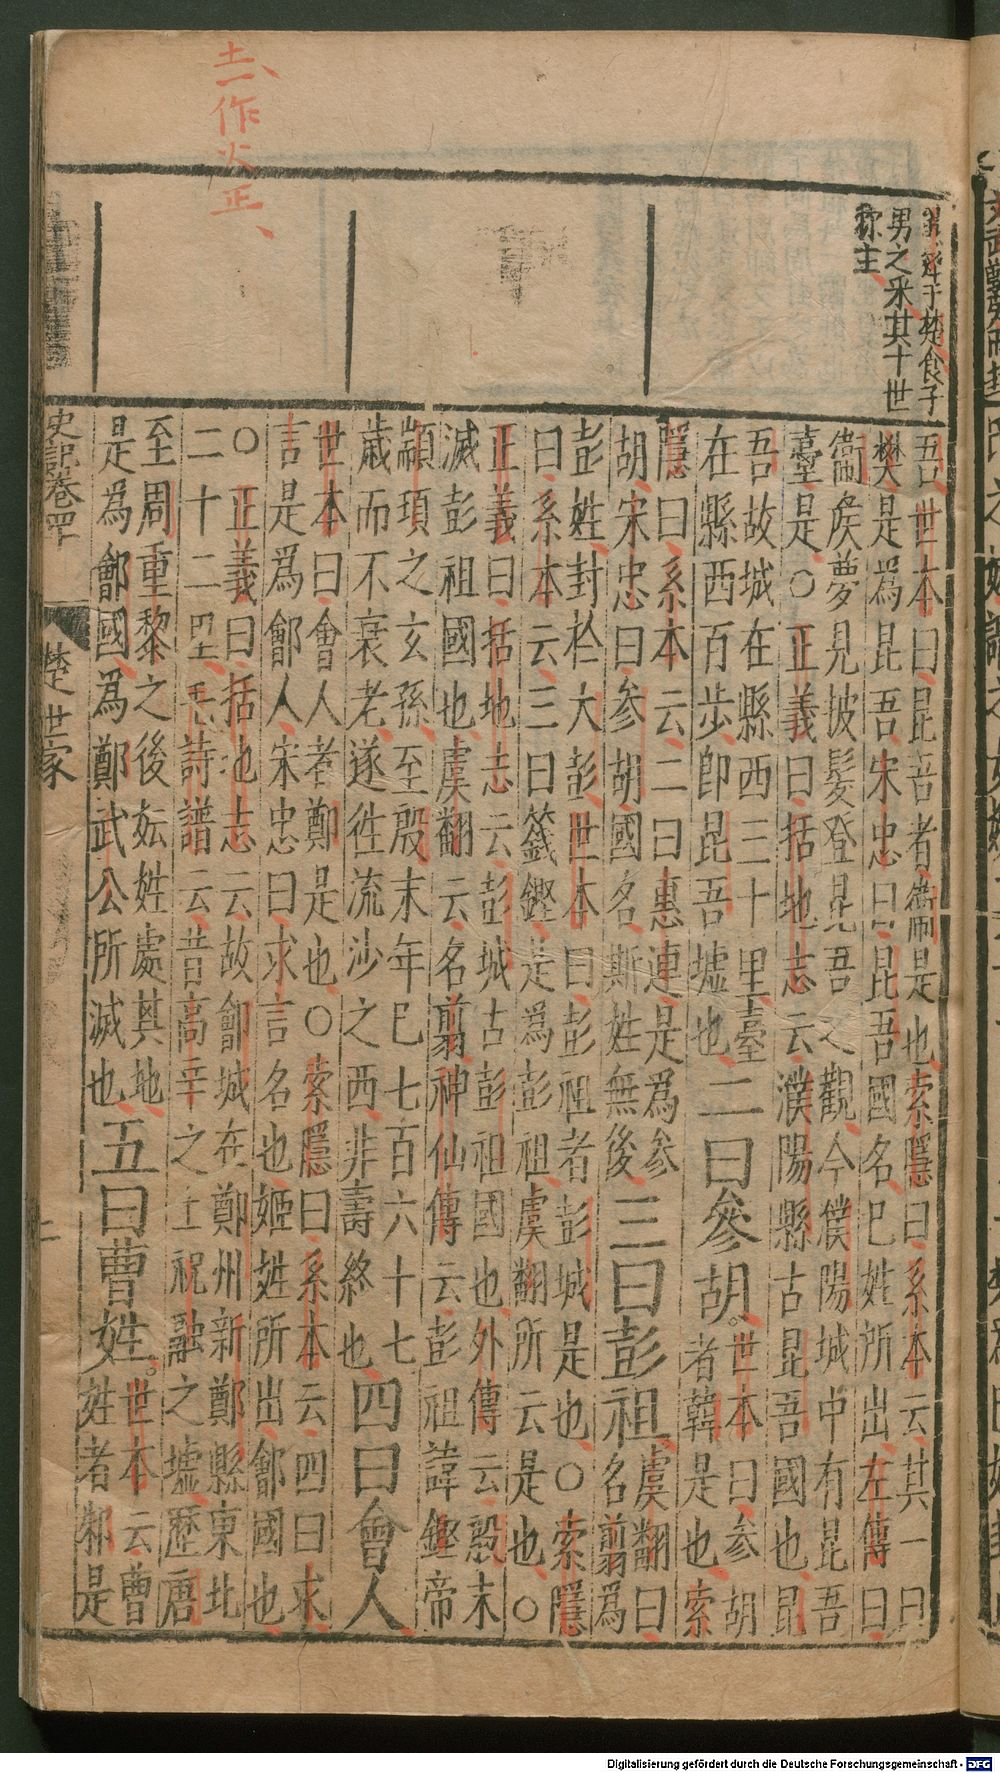 土作火正
遂于楚食子
男之采其十世
稱主
吾世本曰昆吾者衛是也索隱曰系本云其一曰
樊是為昆吾宋忠曰昆吾國名巳姓所出左傳曰
衞矦夢見披髮登昆吾之觀今濮陽城中有昆吾
臺是○正義曰括地志云濮陽縣古昆吾國也昆
吾故城在縣西三十里臺
在縣西百步即昆吾墟也
二曰參胡
世本曰參胡
者韓是也索
隱曰系本云二曰惠連是為參
胡宋忠曰參胡國名斯姓無後
三曰彭祖
虞翻曰
名翦為
彭姓封於大彭世本曰彭祖者彭城是也○索隱
曰系本云三曰籛鏗是為彭祖虞翻所云是也○
正義曰括地志云彭城古彭祖國也外傳云殷末
滅彭祖國也虞翻云名翦神仙傳云彭祖諱鏗帝
顓頊之玄孫至殷末年已七百六十七
歲而不衰老遂徃流沙之西非壽終也
四曰會人
世本曰會人者鄭是也○索隱曰系本云四曰求
言是為鄶人宋忠曰求言名也姬姓所出鄶國也
○正義曰括地志云故鄶城在鄭州新鄭縣東北
二十二里毛詩譜云昔高辛之土祝融之墟歷唐
至周重黎之後妘姓處其地
是為鄶國為鄭武公所滅也
五曰曹姓
世本云曹
姓者邾是
史記卷四十
楚世家
Digitalisierung gefördert durch die Deutsche Forschungsgemeinschaft - DFG